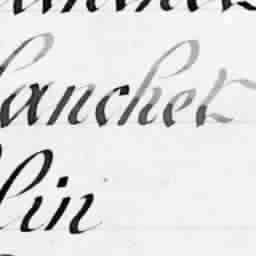 lanchet
lin